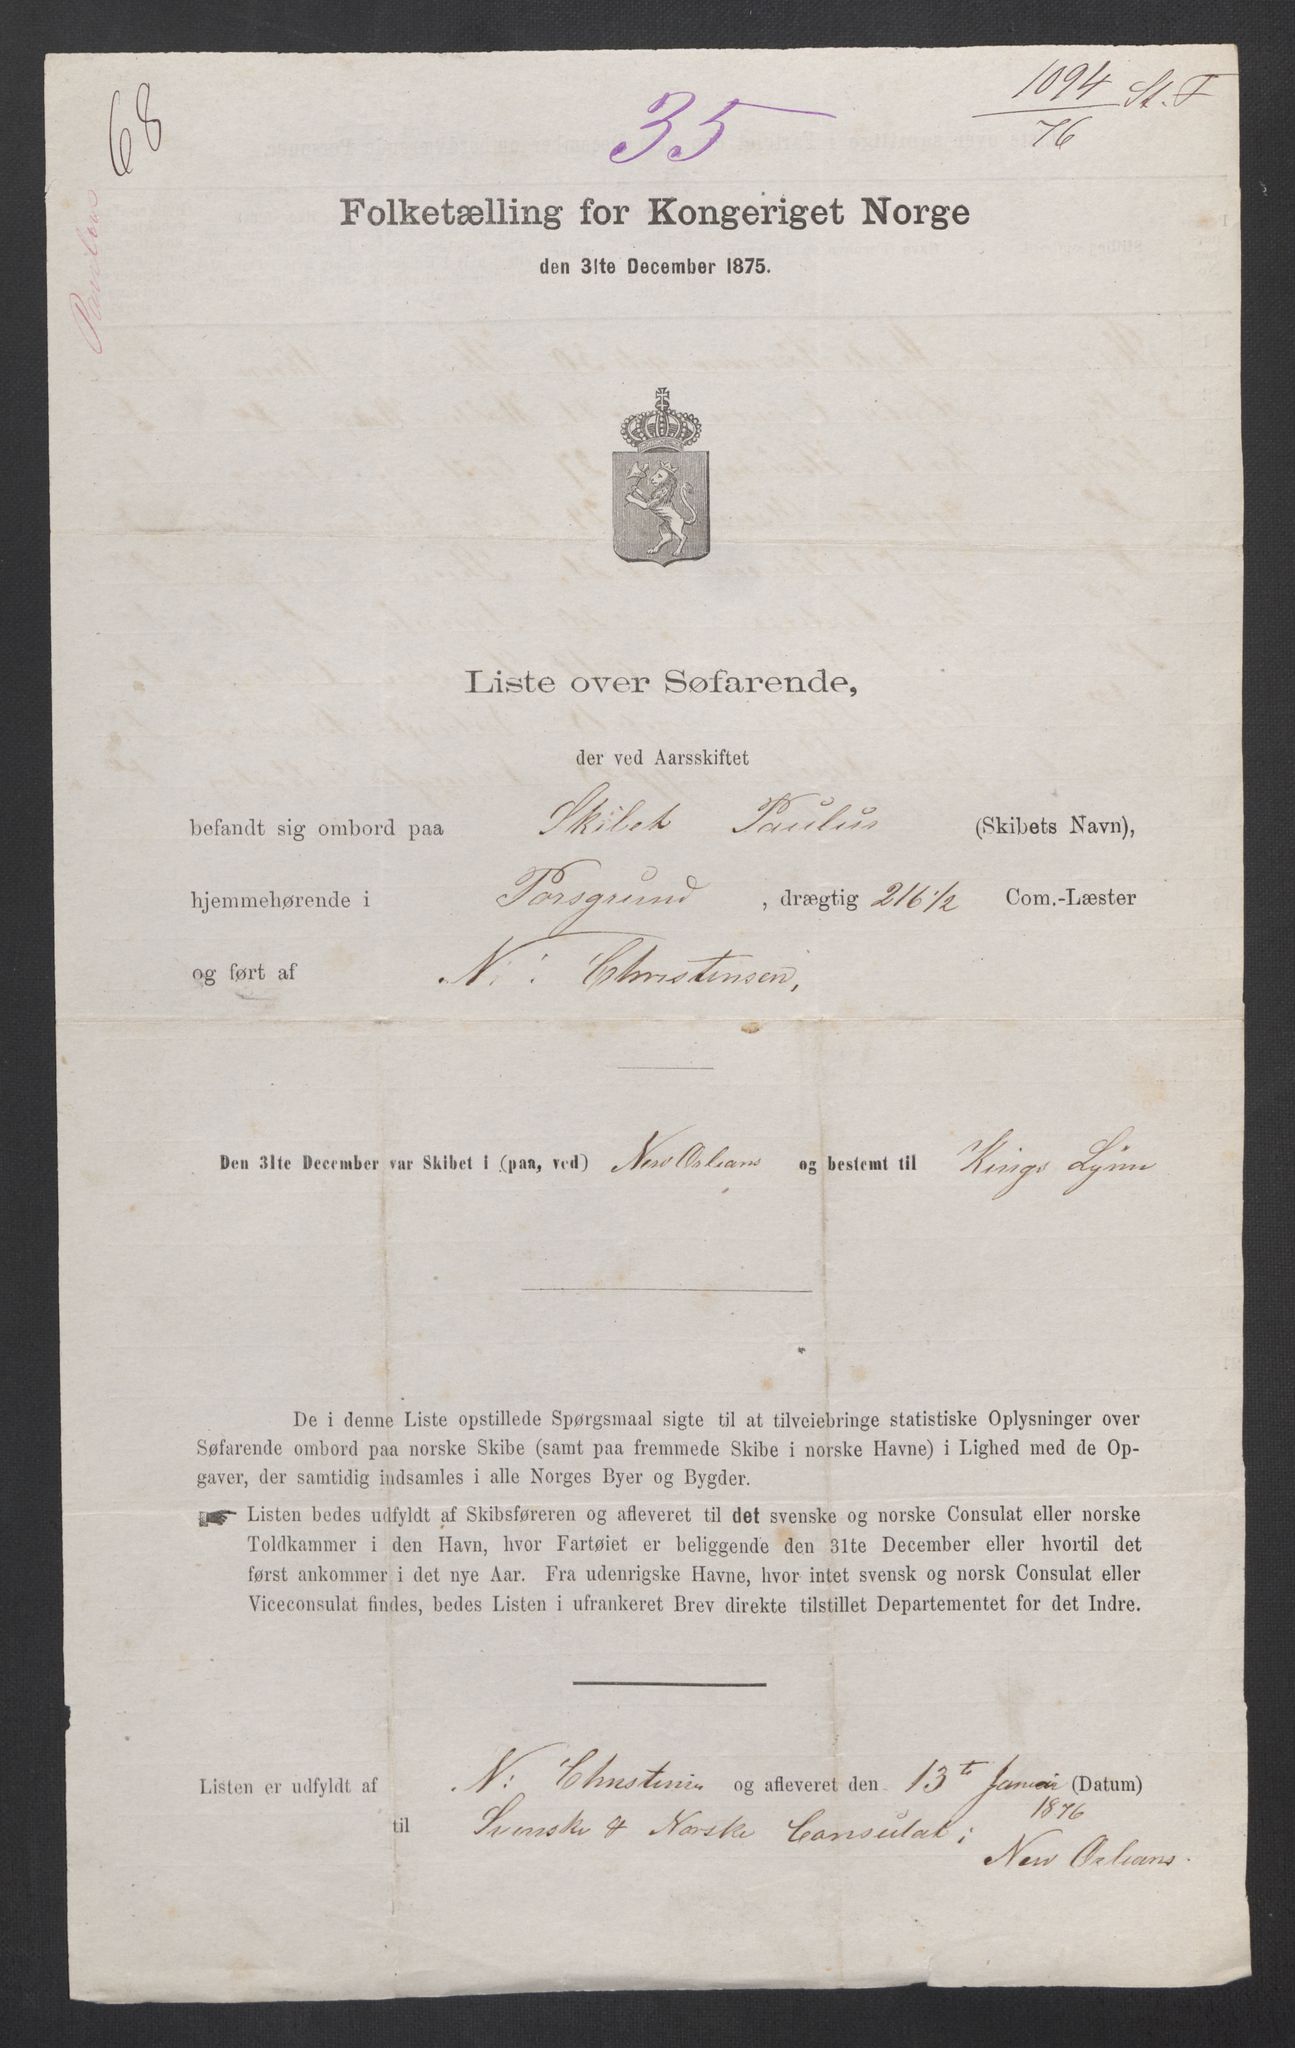 68
35
1094 St. F
76
Paulus
Folketælling for Kongeriget Norge
den 31te December 1875.
Liste over Søfarende,
der ved Aarsskiftet
befandt sig ombord paa Skibet Paulus (Skibets Navn),
hjemmehørende i Porsgrund, drægtig 216 1/2 Com.-Læster
og ført af N: Christensen,
Den 31te December var Skibet i (paa, ved) New Orleans og bestemt til Kings Lynn
De i denne Liste opstillede Spørgsmaal sigte til at tilveiebringe statistiske Oplysninger over
Søfarende ombord paa norske Skibe (samt paa fremmede Skibe i norske Havne) i Lighed med de Op-
gaver, der samtidig indsamles i alle Norges Byer og Bygder.
Listen bedes udfyldt af Skibsføreren og afleveret til det svenske og norske Consulat eller norske
Toldkammer i den Havn, hvor Fartøiet er beliggende den 31te December eller hvortil det
først ankommer i det nye Aar. Fra udenrigske Havne, hvor intet svensk og norsk Consulat eller
Viceconsulat findes, bedes Listen i ufrankeret Brev direkte tilstillet Departementet for det Indre.
Listen er udfyldt af N: Christensen og afleveret den 13te Januar (Datum)
1876
til Svenske & Norske Consulat i
New Orleans.